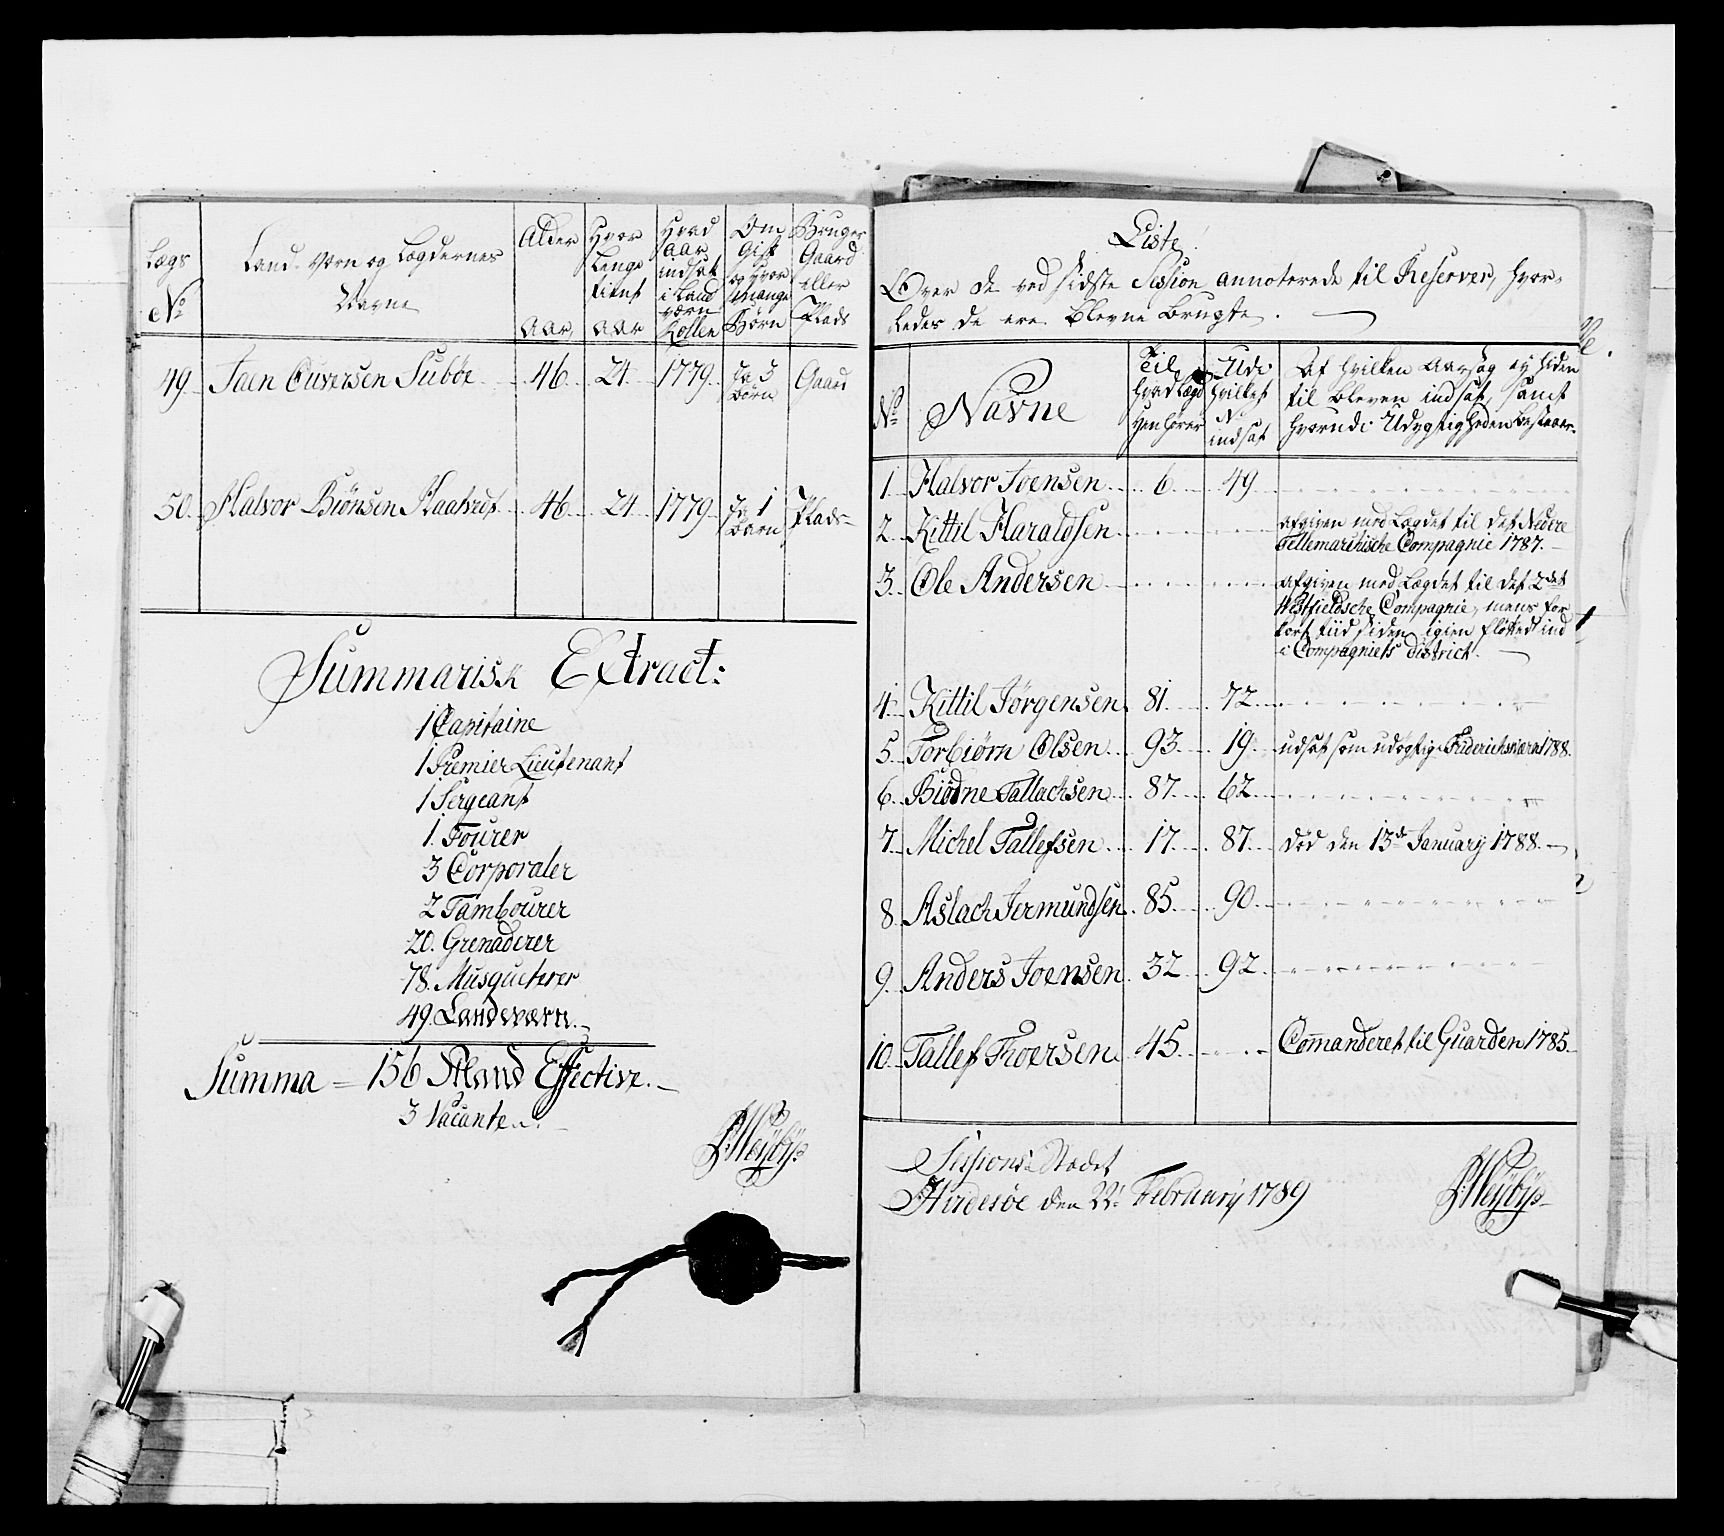 Lægs
No
Land-Værn og Lægdernes
Nafne
Alder
Aar,
Hvor
Længe
tient
Aar
Hvad
Aar
indsat
i Land
værn
Rollen
Om
Gift
og Hvor
Mange
Børn
Bruger
Gaard
eller
Plads
49. Joen Giversen Suboe 46. 24. 1779. Ja 3 Børn Gaard
50. Halvor Biönsen Haatvedt 46 24 1779 Ja 1 Barn Plads
Summarisk Extract:
1 Capitaine
1 Premier Lieutenant
1 Sergeant
1. Fourer
3 Corporaler
2 Tambourer
20. Grenaderer
78. Musqueterer
49. Landværn.
Summa = 156 Mand Effective.
3 Vacante.
Weÿbÿe
Liste
Over de ved sidste Session annoterede til Reserver, hvor-
ledes de ere blevne Brugte.
No
Navne
Til
hvad Lægd
Hen hører
Udi
hvilket
No
indsat
Af hvilken Aarsag ey siden
til bleven indsat, samt
hvorudi Udygtigheden bestaaer.
1. Halvor Joensen 6. 49
2. Kittil Haraldsen afgiven med Lægdet til det Nedre
Tellemarchische Compagnie 1787.
3. Ole Andersen afgiven med Lægdet til det 2det
Westfieldsche Compagnie, mens for
kort tiid siden igien fløttet ind
i Compagniets district.
4. Kittil Jörgensen 81. 72.
5. Torbiörn Olsen 93. 19. udsat som udögtig Friderichsværn 1788.
6. Biödne Tallachsen 87. 62.
7. Michel Tallefsen 17. 87. Död den 13de Januarÿ 1788.
8. Aslach Jermundsen 85. 90.
9. Anders Joensen 32 92
10. Tallef Thoersen 45. Comanderet til Guarden 1785.
Sessions Stædet
Hirdesöe den 22. Februarÿ 1789
Weÿbÿe